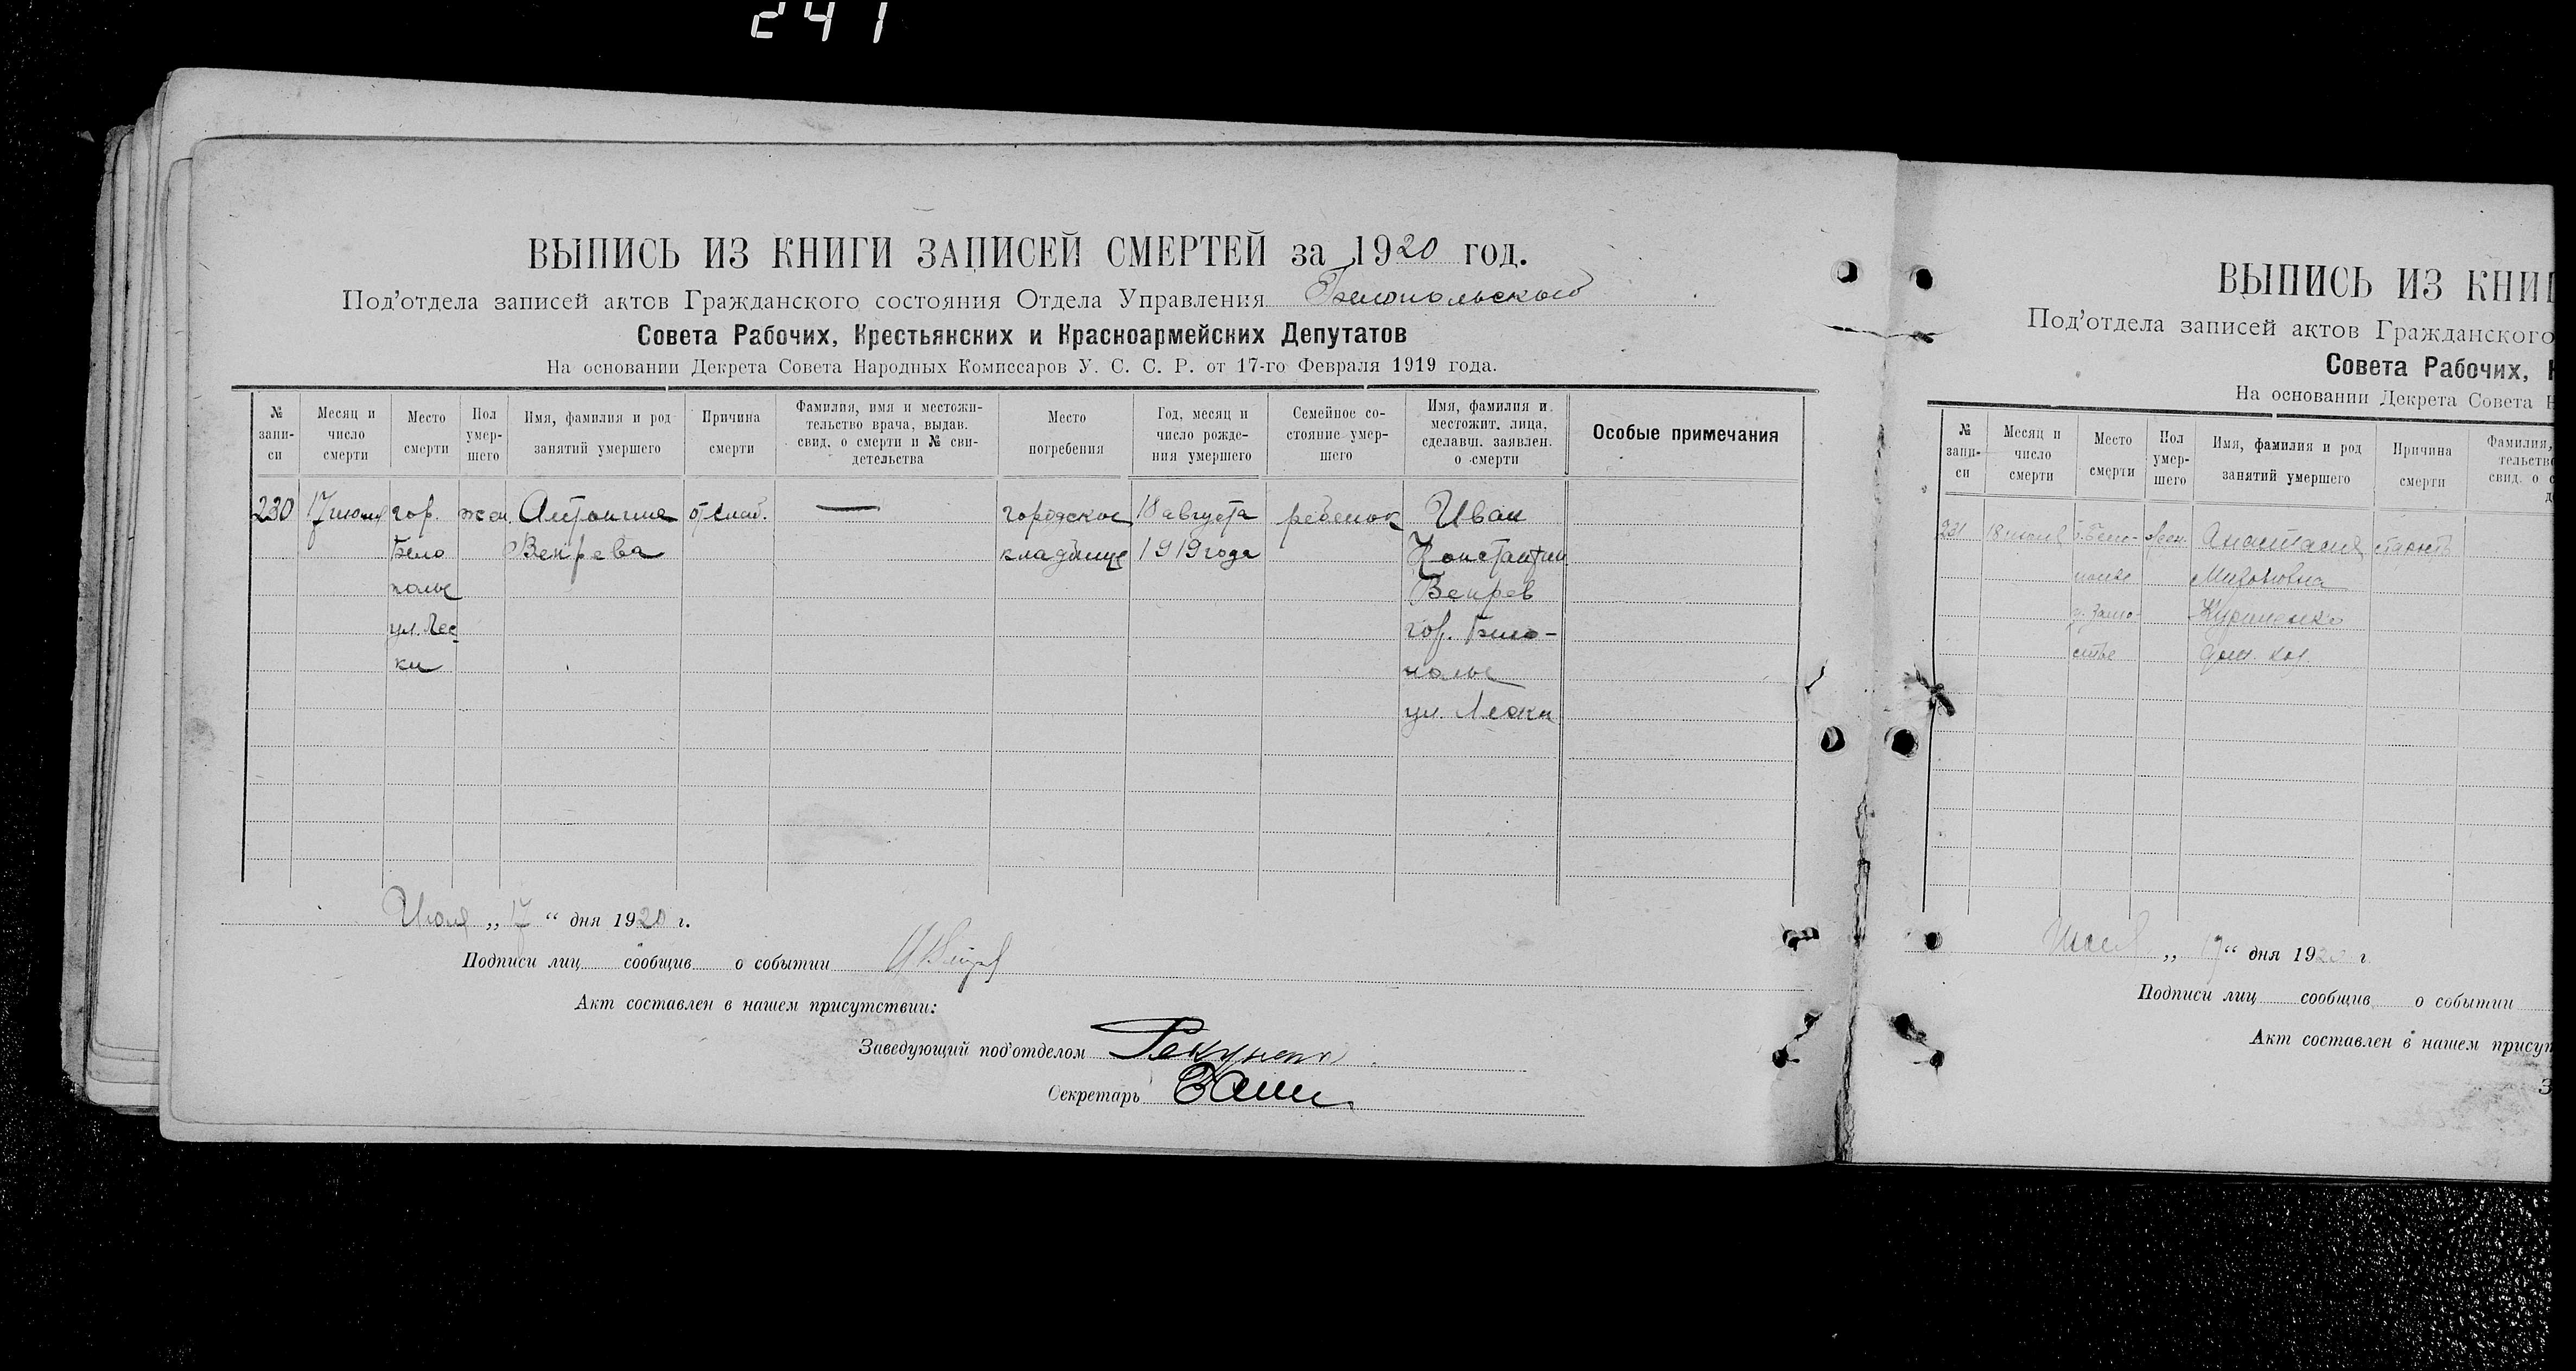 241
ВЫПИСЬ ИЗ КНИГИ ЗАПИСЕЙ СМЕРТЕЙ за 1920 год.
Под'отдела записей актов Гражданского состояния Отдела Управления Белопольского
Совета Рабочих, Крестьянских и Красноармейских Депутатов
На основании Декрета Совета Народных Комиссаров У. С. С. Р. от 17-го Февраля 1919 года.
№ запи-си
Месяц и число смерти
Место смерти
Пол умер-шего
Имя, фамилия и род занятий умершего
Причина смерти
Фамилия, имя и местожи-тельство врача, выдав. свид. о смерти и № сви-детельства
Место погребения
Год, месяц и число рожде-ния умершего
Семейное со-стояние умер-шего
Имя, фамилия и местожит. лица, сделавш. заявлен. о смерти
Особые примечания
230 17 июля гор. жен. Антонина от слаб. — городское 18 августа ребенок Иван
Бело Венрева кладбище 1919 года Константин
полье Венрев
ул. Лес- гор. Бело-
ки полье
ул. Лески
Июля „ 17 “ дня 1920 г.
Подписи лиц сообщив о событии
Акт составлен в нашем присутствии:
Заведующий под'отделом
Секретарь
ВЫПИСЬ ИЗ КНИГ
Под'отдела записей актов Гражданского
Совета Рабочих, К
На основании Декрета Совета Н
№ запи-си
Месяц и число смерти
Место смерти
Пол умер-шего
Имя, фамилия и род занятий умершего
Причина смерти
Фамилия, тельство свид. о с д
231 18 июля г. Бело- жен. Анастасия старость
полье
у. Замо-
стье
Июля „ 19 “ дня 1920 г
Подписи лиц сообщив о событии
Акт составлен в нашем присут
З